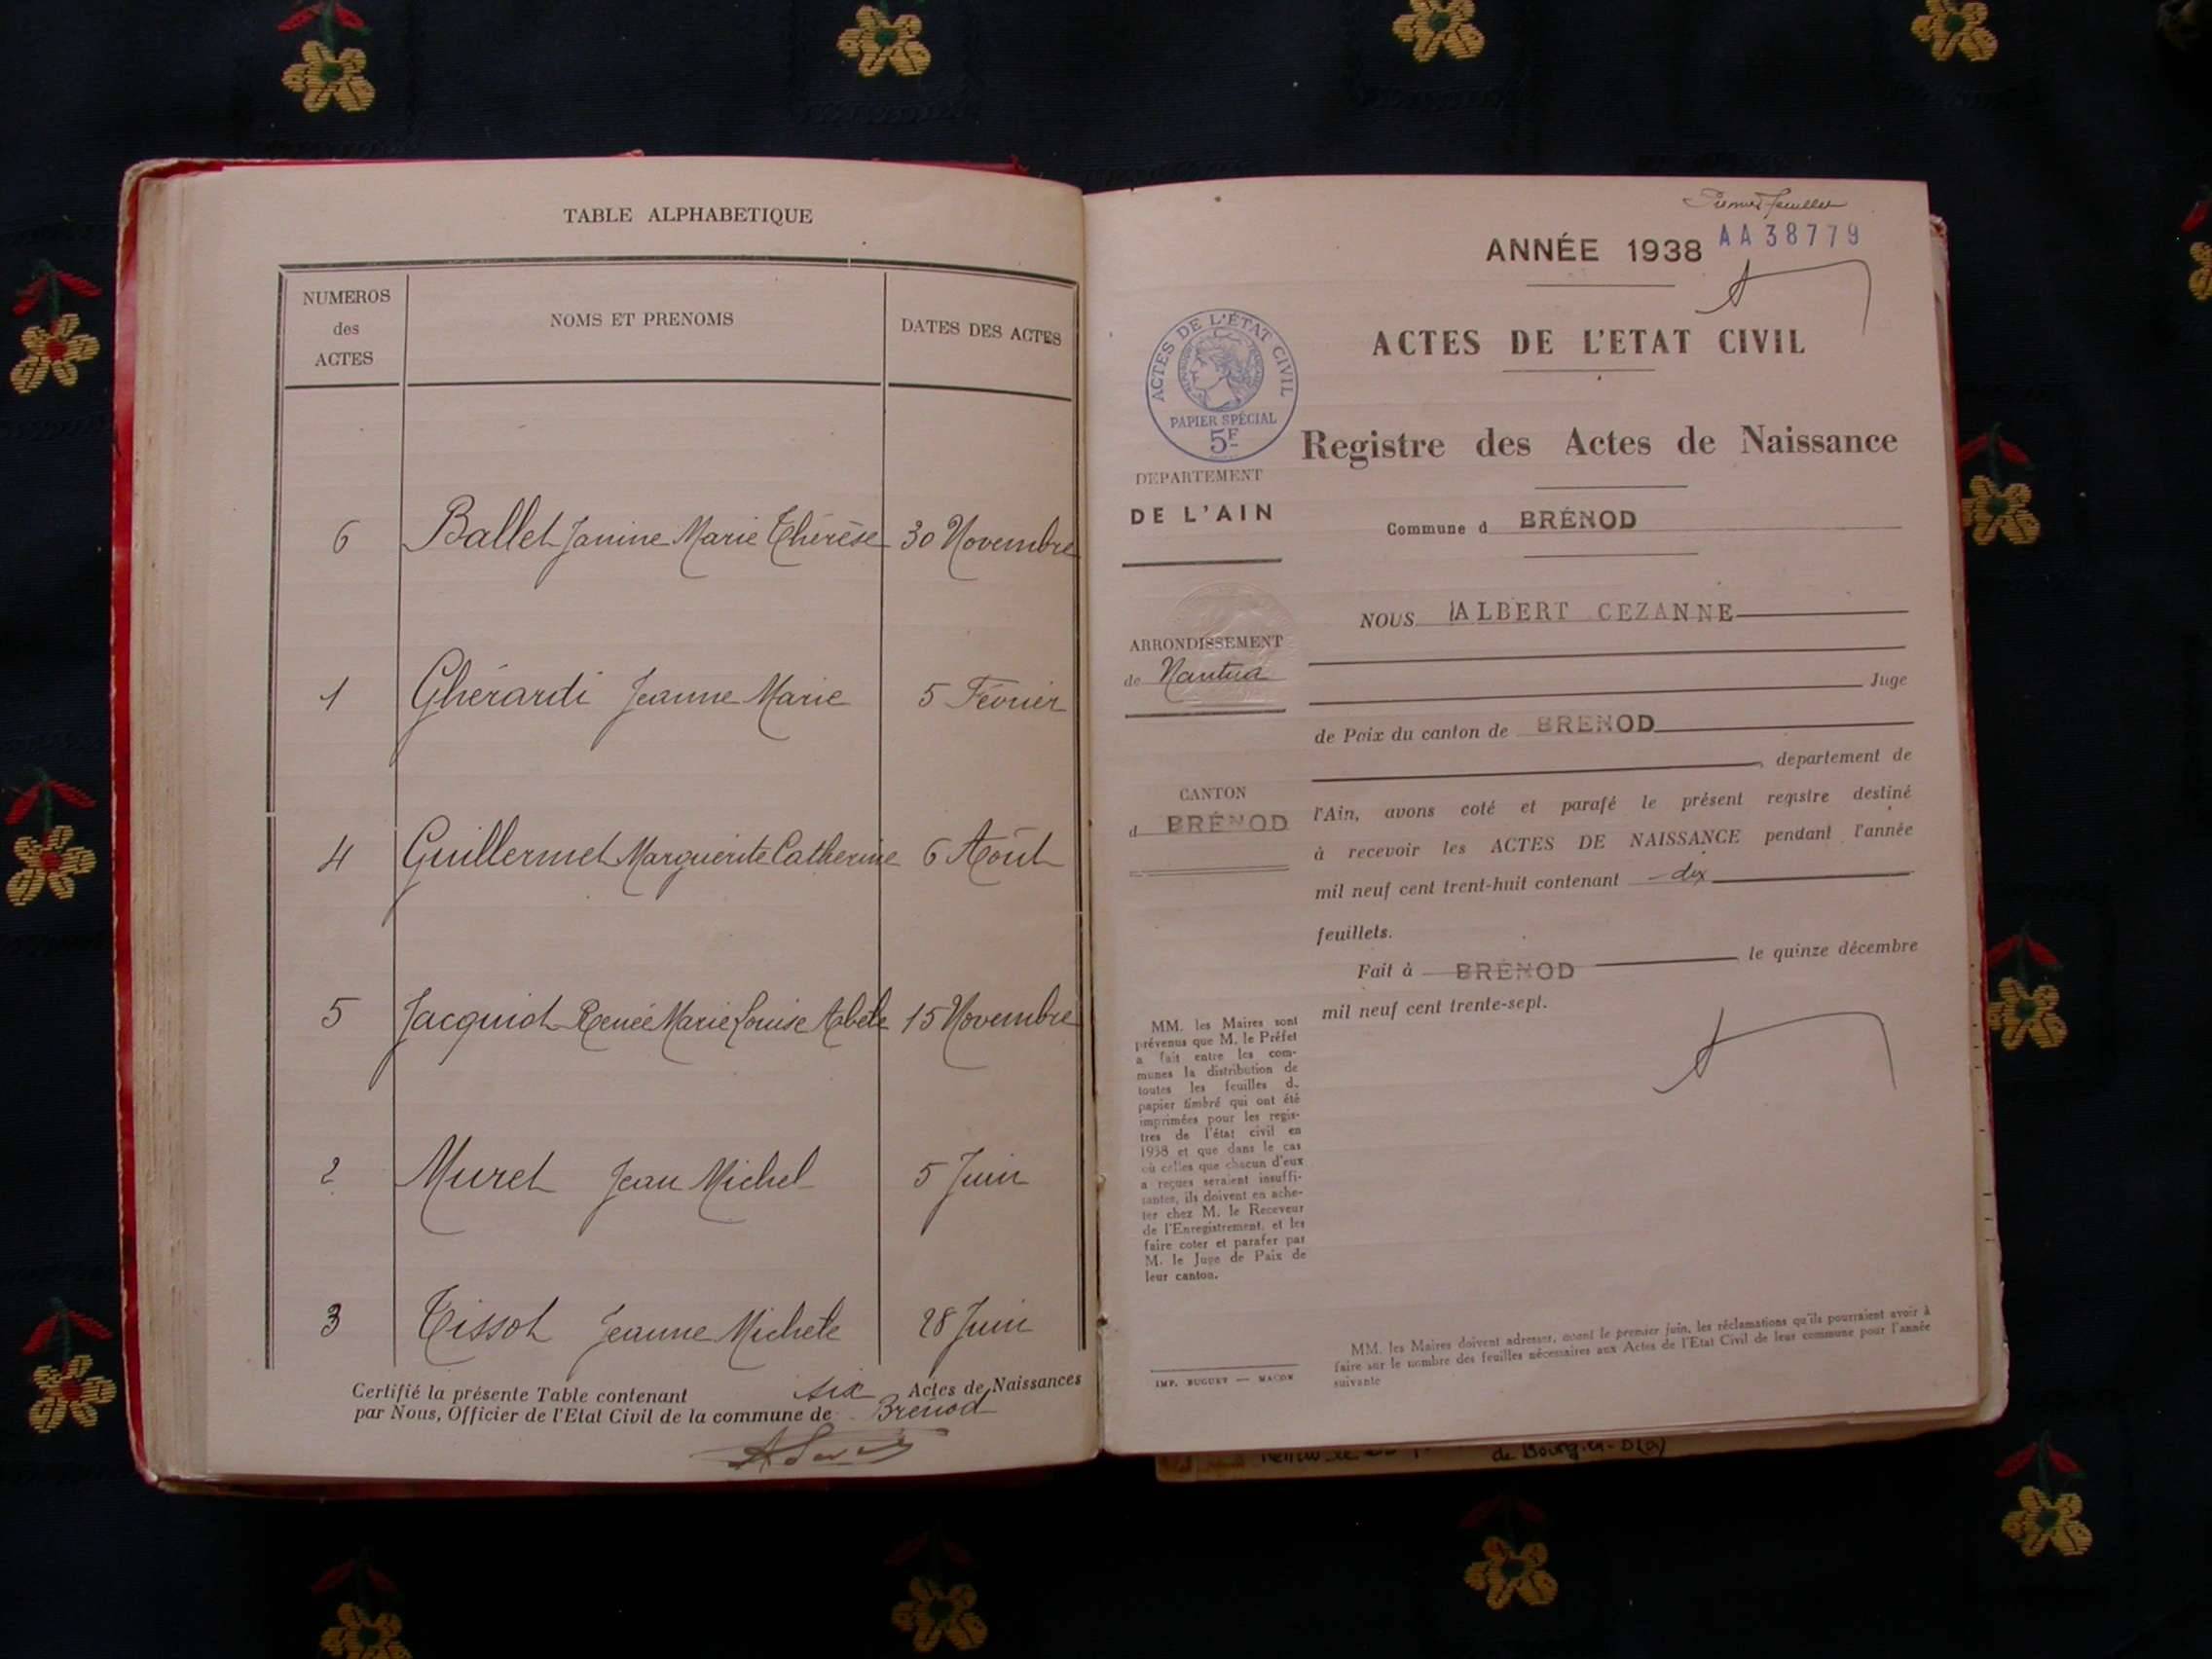 TABLE ALPHABETIQUE
NUMEROS
des
ACTES
NOMS ET PRENOMS
DATES DES ACTES
6 Ballet Janine Marie Thérèse 30 Novembre
1 Ghérardi Jeanne Marie 5 Février
4 Guillermet Marguerite Catherine 6 Août
5 Jacquiot Renée Marie Louise 15 Novembre
2 Muret Jean Michel 5 Juin
3 Tissot Jeanne Michele 28 Juin
Certifié la présente Table contenant six Actes de Naissances
par Nous, Officier de l'Etat Civil de la commune de Brénod
Premier feuillet
ANNÉE 1938 AA 38779
ACTES DE L'ÉTAT CIVIL
RÉPUBLIQUE FRANÇAISE
PAPIER SPÉCIAL
5F
ACTES DE L'ETAT CIVIL
Registre des Actes de Naissance
DEPARTEMENT
DE L'AIN
Commune d BRÉNOD
ARRONDISSEMENT
de Nantua
CANTON
d BRÉNOD
NOUS ALBERT CEZANNE
Juge
de Paix du canton de BRENOD
, departement de
l'Ain, avons coté et parafé le présent registre destiné
à recevoir les ACTES DE NAISSANCE pendant l'année
mil neuf cent trent-huit contenant dix
feuillets.
Fait à BRÉNOD le quinze décembre
mil neuf cent trente-sept.
MM. les Maires sont
prévenus que M. le Préfet
a fait entre les com-
munes la distribution de
toutes les feuilles d.
papier timbré qui ont été
imprimées pour les regis-
tres de l'état civil en
1938 et que dans le cas
où celles que chacun d'eux
a reçues seraient insuffi-
santes, ils doivent en ache-
ter chez M. le Receveur
de l'Enregistrement, et les
faire coter et parafer par
M. le Juge de Paix de
leur canton.
IMP. BUGUET — MACON
MM. les Maires doivent adresser, avant le premier juin, les réclamations qu'ils pourraient avoir à
faire sur le nombre des feuilles nécessaires aux Actes de l'Etat Civil de leur commune pour l'année
suivante
de Bourg-en-